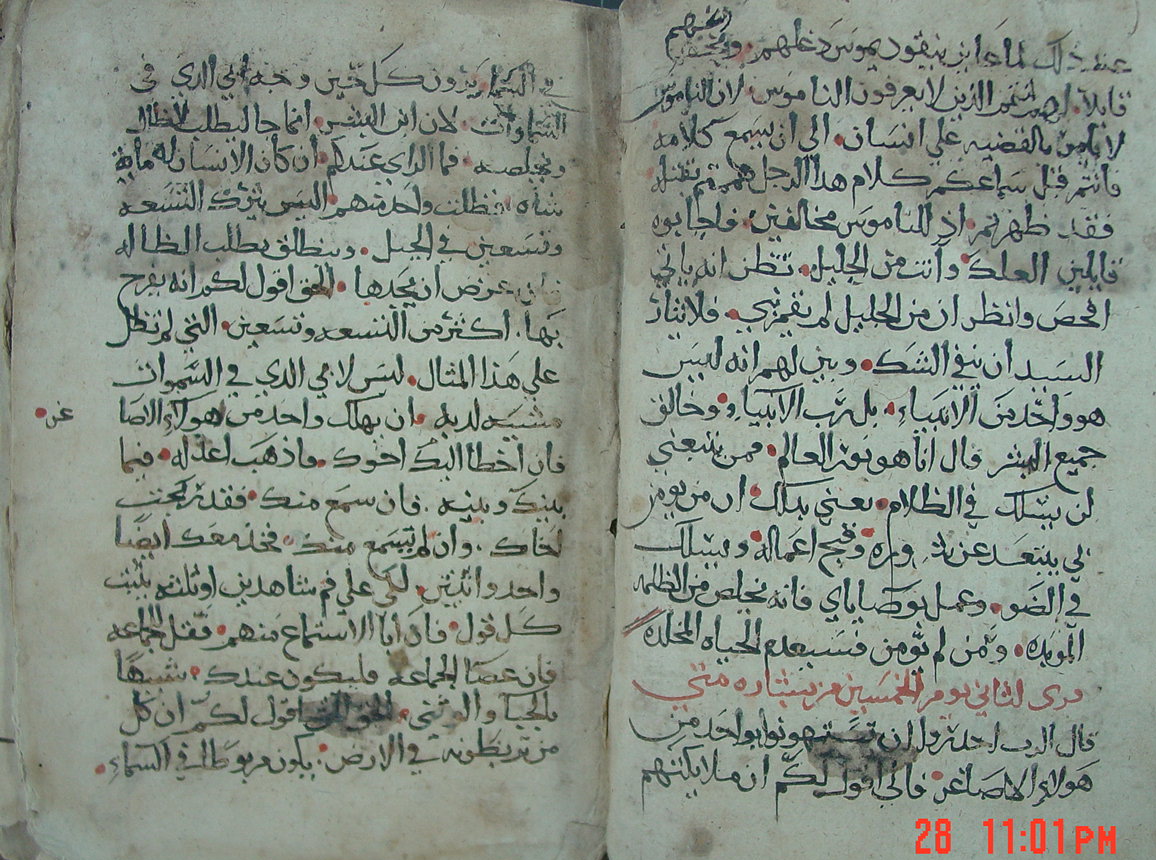 عند ذلك لماذا بن نيقوديموس وعلمهم وافحمهم
قايلا لهم انتم الذين لا يعرفون الناموس لان الناموس
لا يامر بالقضيه على انسان الى ان يسمع كلامه
فانتم قبل سماعكم كلام هذا الرجل هممتم بقتله
فقد ظهرتم اذ للناموس مخالفين فاجابوه
قايلين العلك وانت من الجليل تنظر انه ياتي
افحص وانظر ان من الجليل لم يقم نبي فلاثار
السيد ان ينفي الشك وبين لهم انه ليس
هو واحد من الانبياء بل رب الانبياء وخالق
جميع البشر قال انا هو نور العالم فمن يتبعني
لن يسلك في الظلام يعني بذلك ان من يومن
بي يبتعد عن وقبيح اعماله ويسلك
في الضو وعمل بوصاياي فانه يخلص من الظلمه
الموبده ومن لم يومن فسيعدم الحياه المخلده
لثاني يوم الخمسين من بشاره متي
قال الرب احدروا ان تستهونوا بواحد من
هولاء الاصاغر فاني اقول لكم ان ملايكتهم
في السما يرون كل حين وجه ابي الدي في
السماوات لان ابن البشر انما جا ليطلب لاظال
ويخلصه فما الراي عندكم ان كان الانسان له مايه
شاه فظلت واحده منهم اليس يترك التسعه
وتسعين في الجبل وينطلق يطلب الظاله
فان عرض ان يجدها الحق اقول لكم انه يفرح
بها اكثر من التسعه وتسعين التي لم تظل
علي هذا المثال ليس لابي الدي في السموات
مشييه لديه ان يهلك واحد من هولاء الاصا
غر
فان اخطا اليك اخوك فاذهب اعدله فيما
بينك وبينه فان سمع منك فقد ربحت
اخاك وان لم يسمع منك فخد معك ايضا
واحد واثنين لكي علي فم شاهدين او ثلثه يثبت
كل قول فان ابا الاستماع منهم فقل للجماعه
فان عصا الجماعه فليكون عندك شبيها
بالجبا والوثني الحق الحق اقول لكم ان كل
من تربطونه في الارض يكون مربوطا في السماء
28 11:01PM